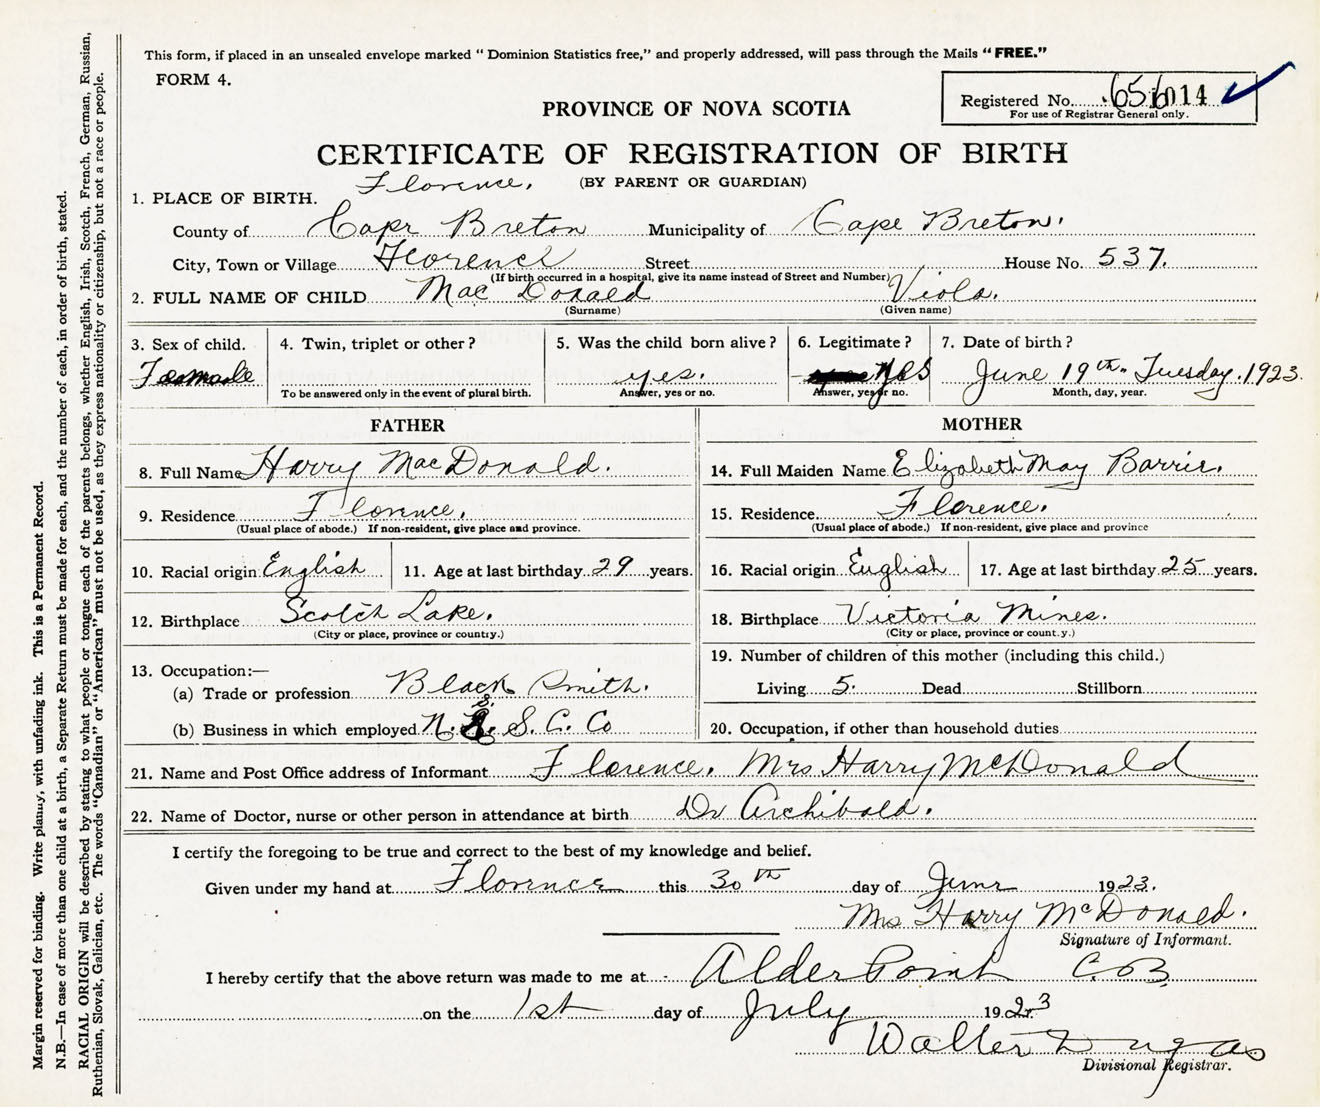 This form, if placed in an unsealed envelope marked “ Dominion Statistics free,” and properly addressed, will pass through the Mails “ FREE.”
FORM 4.
Registered No. 014
For use of Registrar General only.
PROVINCE OF NOVA SCOTIA
CERTIFICATE OF REGISTRATION OF BIRTH
(BY PARENT OR GUARDIAN)
Florence.
1. PLACE OF BIRTH.
County of Cape Breton Municipality of Cape Breton.
City, Town or Village Florence Street House No. 537.
(If birth occurred in a hospital, give its name instead of Street and Number)
2. FULL NAME OF CHILD Mac Donald Viola.
(Surname) (Given name)
3. Sex of child. 4. Twin, triplet or other ? 5. Was the child born alive ? 6. Legitimate ? 7. Date of birth ?
yes. yes June 19th. Tuesday. 1923.
To be answered only in the event of plural birth. Answer, yes or no. Answer, yes or no. Month, day, year.
FATHER MOTHER
8. Full Name Harry MacDonald. 14. Full Maiden Name Elizabeth May Barrie.
9. Residence Florence. 15. Residence Florence.
(Usual place of abode.) If non-resident, give place and province. (Usual place of abode.) If non-resident, give place and province
10. Racial origin English 11. Age at last birthday 29 years. 16. Racial origin English 17. Age at last birthday 25 years.
12. Birthplace Scotch Lake. 18. Birthplace Victoria Mines.
(City or place, province or country.) (City or place, province or count.y.)
13. Occupation:— 19. Number of children of this mother (including this child.)
(a) Trade or profession Black Smith. Living 5. Dead Stillborn
(b) Business in which employed N. S. S. C. Co 20. Occupation, if other than household duties
21. Name and Post Office address of Informant Florence. Mrs Harry McDonald
22. Name of Doctor, nurse or other person in attendance at birth Dr Archibald.
I certify the foregoing to be true and correct to the best of my knowledge and belief.
Given under my hand at Florence this 30th day of June 1923.
Mrs Harry McDonald.
Signature of Informant.
I hereby certify that the above return was made to me at Alder Point C.B.
on the 1st day of July 1923
Walter Dugas
Divisional Registrar.
Margin reserved for binding. Write plainly, with unfading ink. This is a Permanent Record.
N.B.—In case of more than one child at a birth, a Separate Return must be made for each, and the number of each, in order of birth, stated.
RACIAL ORIGIN will be described by stating to what people or tongue each of the parents belongs, whether English, Irish, Scotch, French, German, Russian,
Ruthenian, Slovak, Galician, etc. The words “Canadian” or “American” must not be used, as they express nationality or citizenship, but not a race or people.